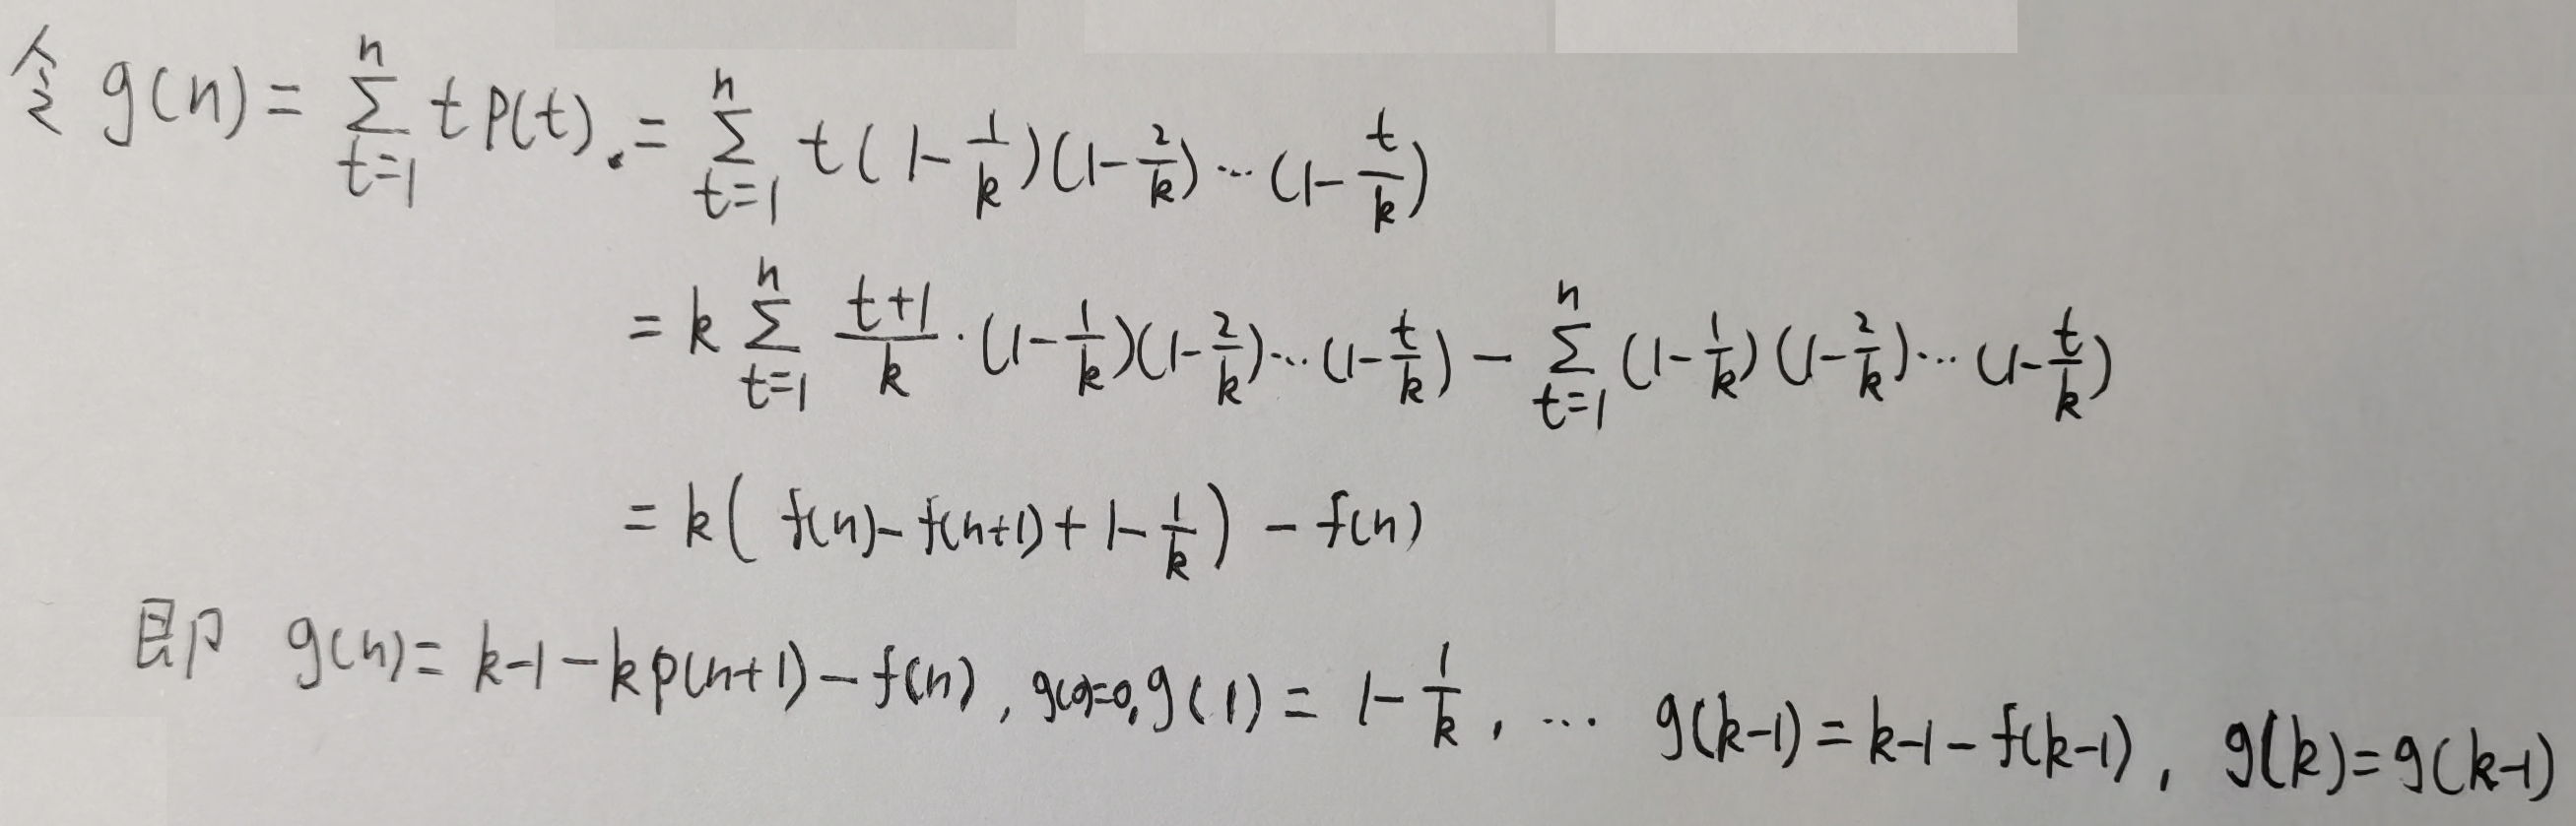 令 g(n) = \sum_{t=1}^{n} t p(t). = \sum_{t=1}^{n} t (1-\frac{1}{k})(1-\frac{2}{k})\cdots(1-\frac{t}{k})
= k \sum_{t=1}^{n} \frac{t+1}{k} \cdot (1-\frac{1}{k})(1-\frac{2}{k})\cdots(1-\frac{t}{k}) - \sum_{t=1}^{n} (1-\frac{1}{k})(1-\frac{2}{k})\cdots(1-\frac{t}{k})
= k( f(n) - f(n+1) + 1 - \frac{1}{k} ) - f(n)
即 g(n) = k-1-kp(n+1)-f(n), g(0)=0, g(1) = 1-\frac{1}{k}, \cdots g(k-1) = k-1-f(k-1), g(k) = g(k-1)